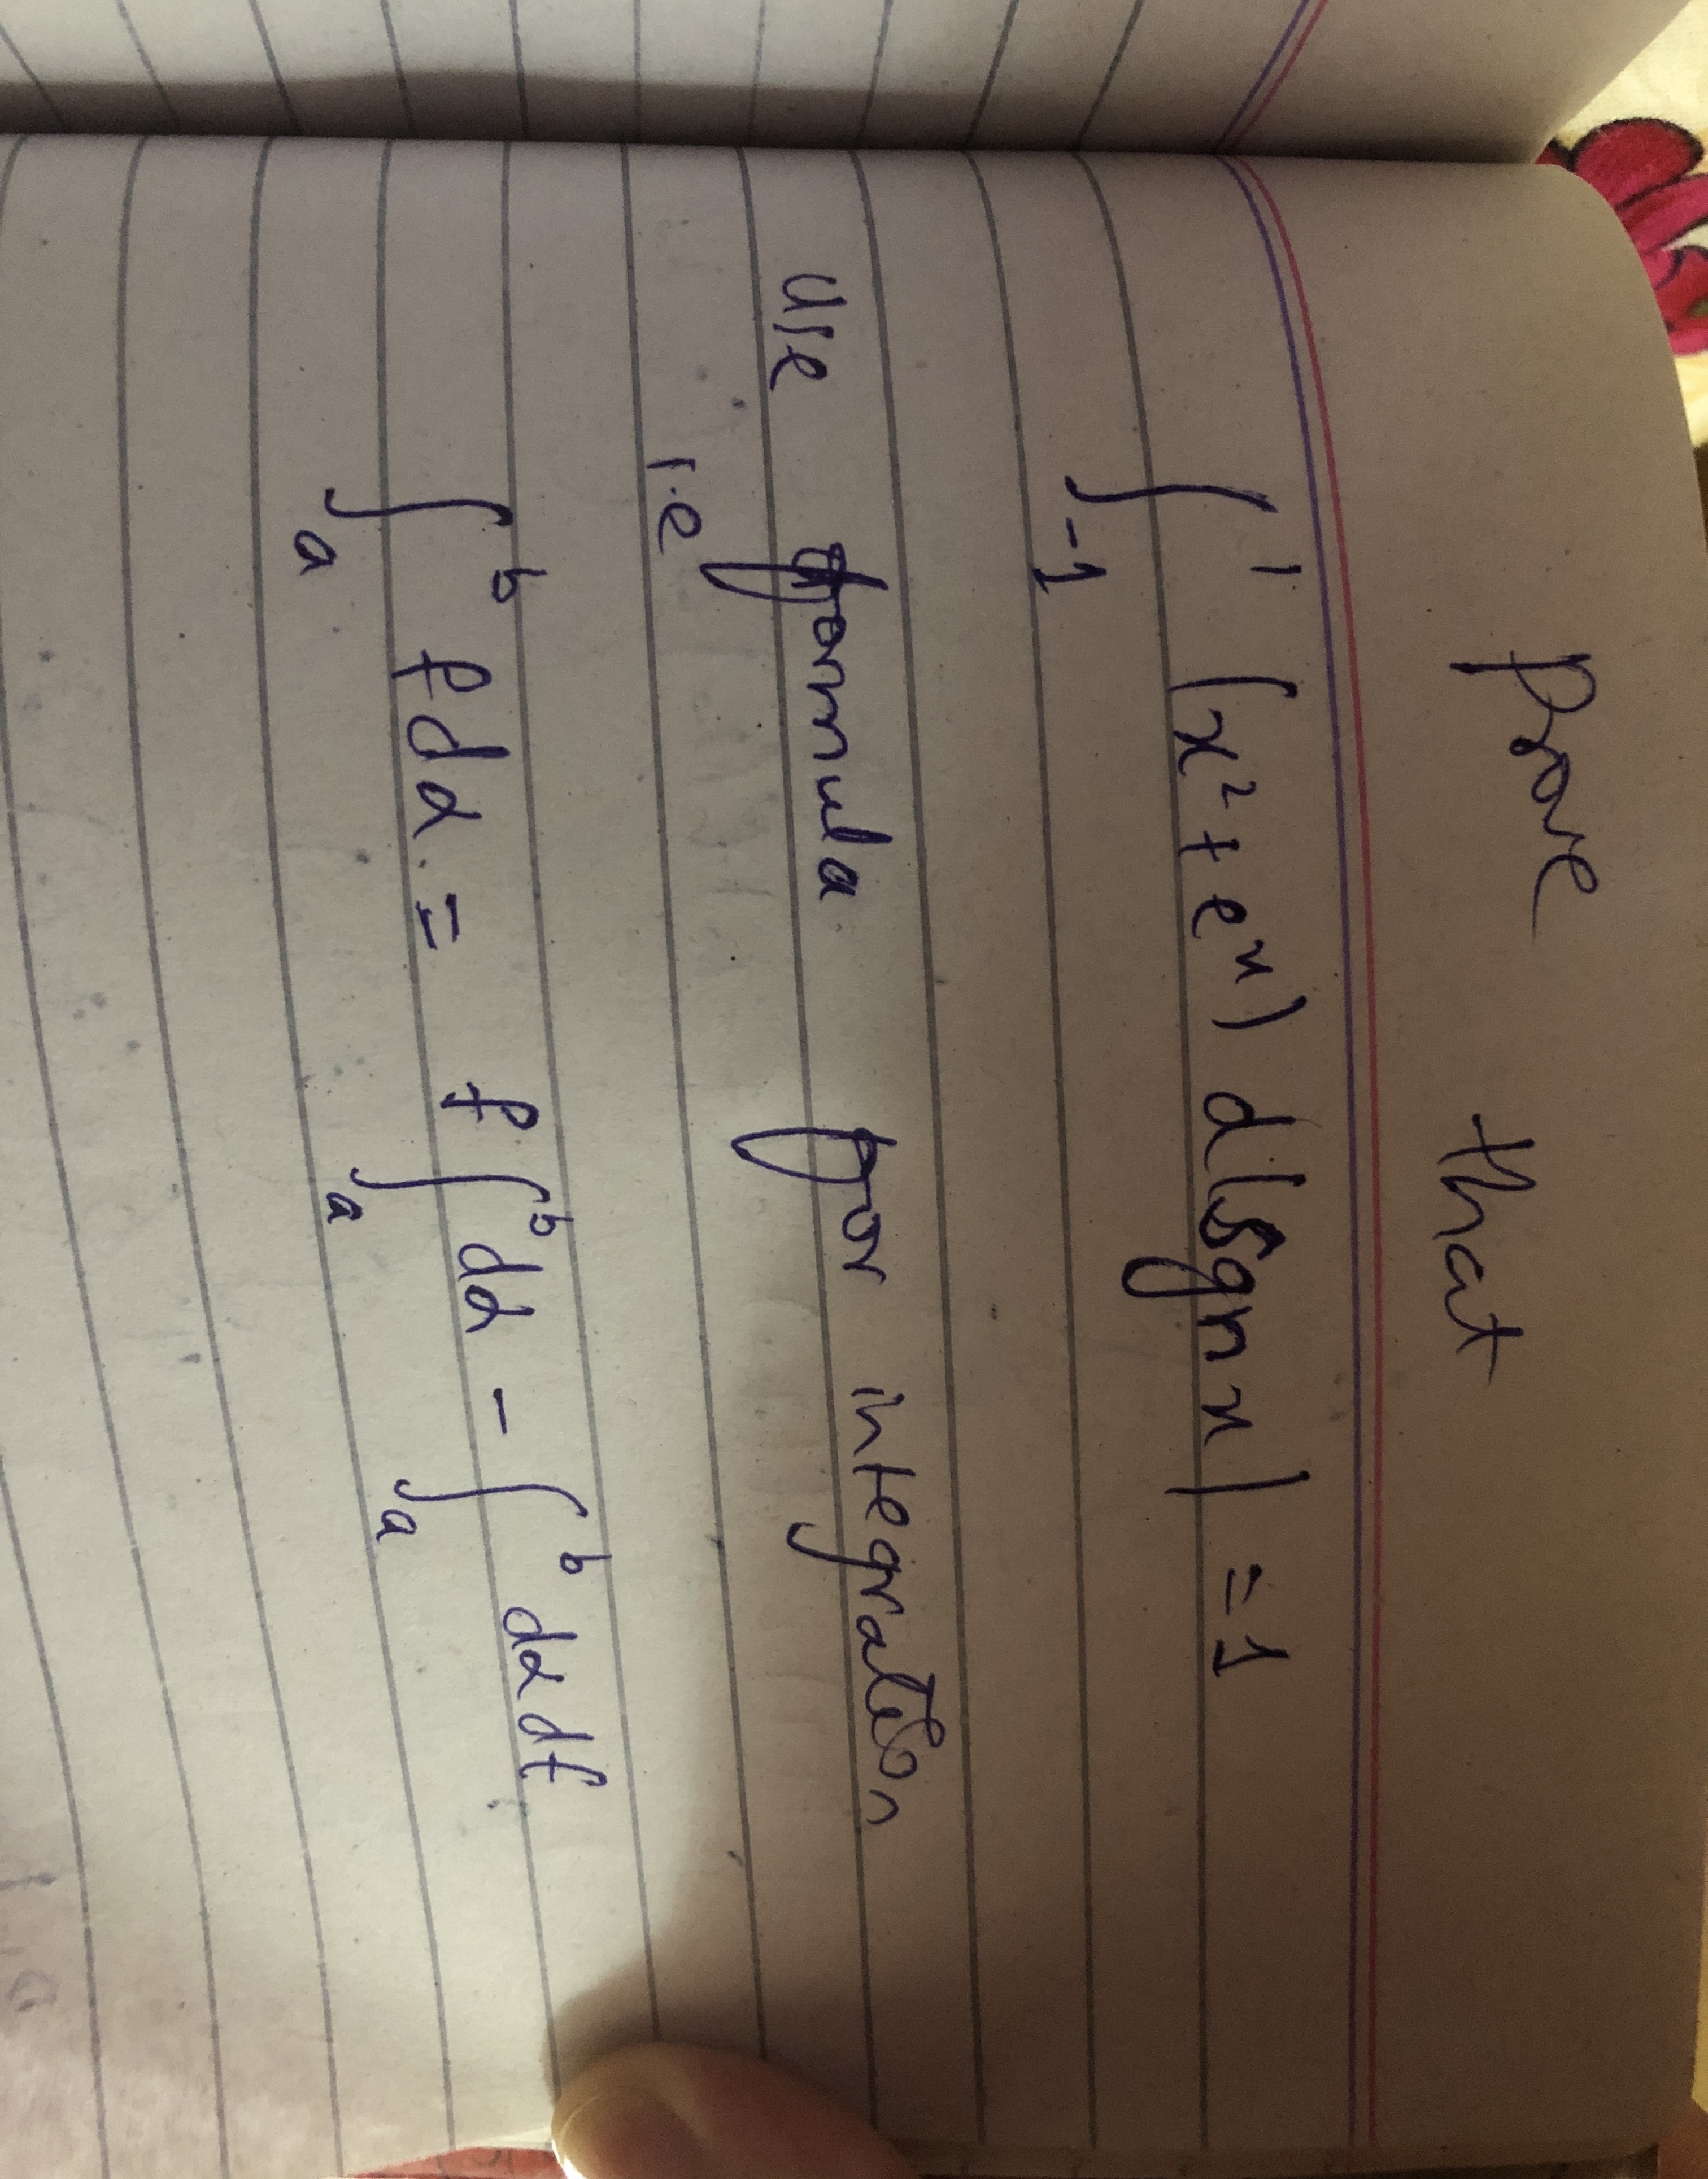 Prove that
∫₋₁¹ (x² + eˣ) d(sgn x) = 1
Use formula for integration
i.e
∫ₐᵇ f dα = f ∫ₐᵇ dα - ∫ₐᵇ dα df